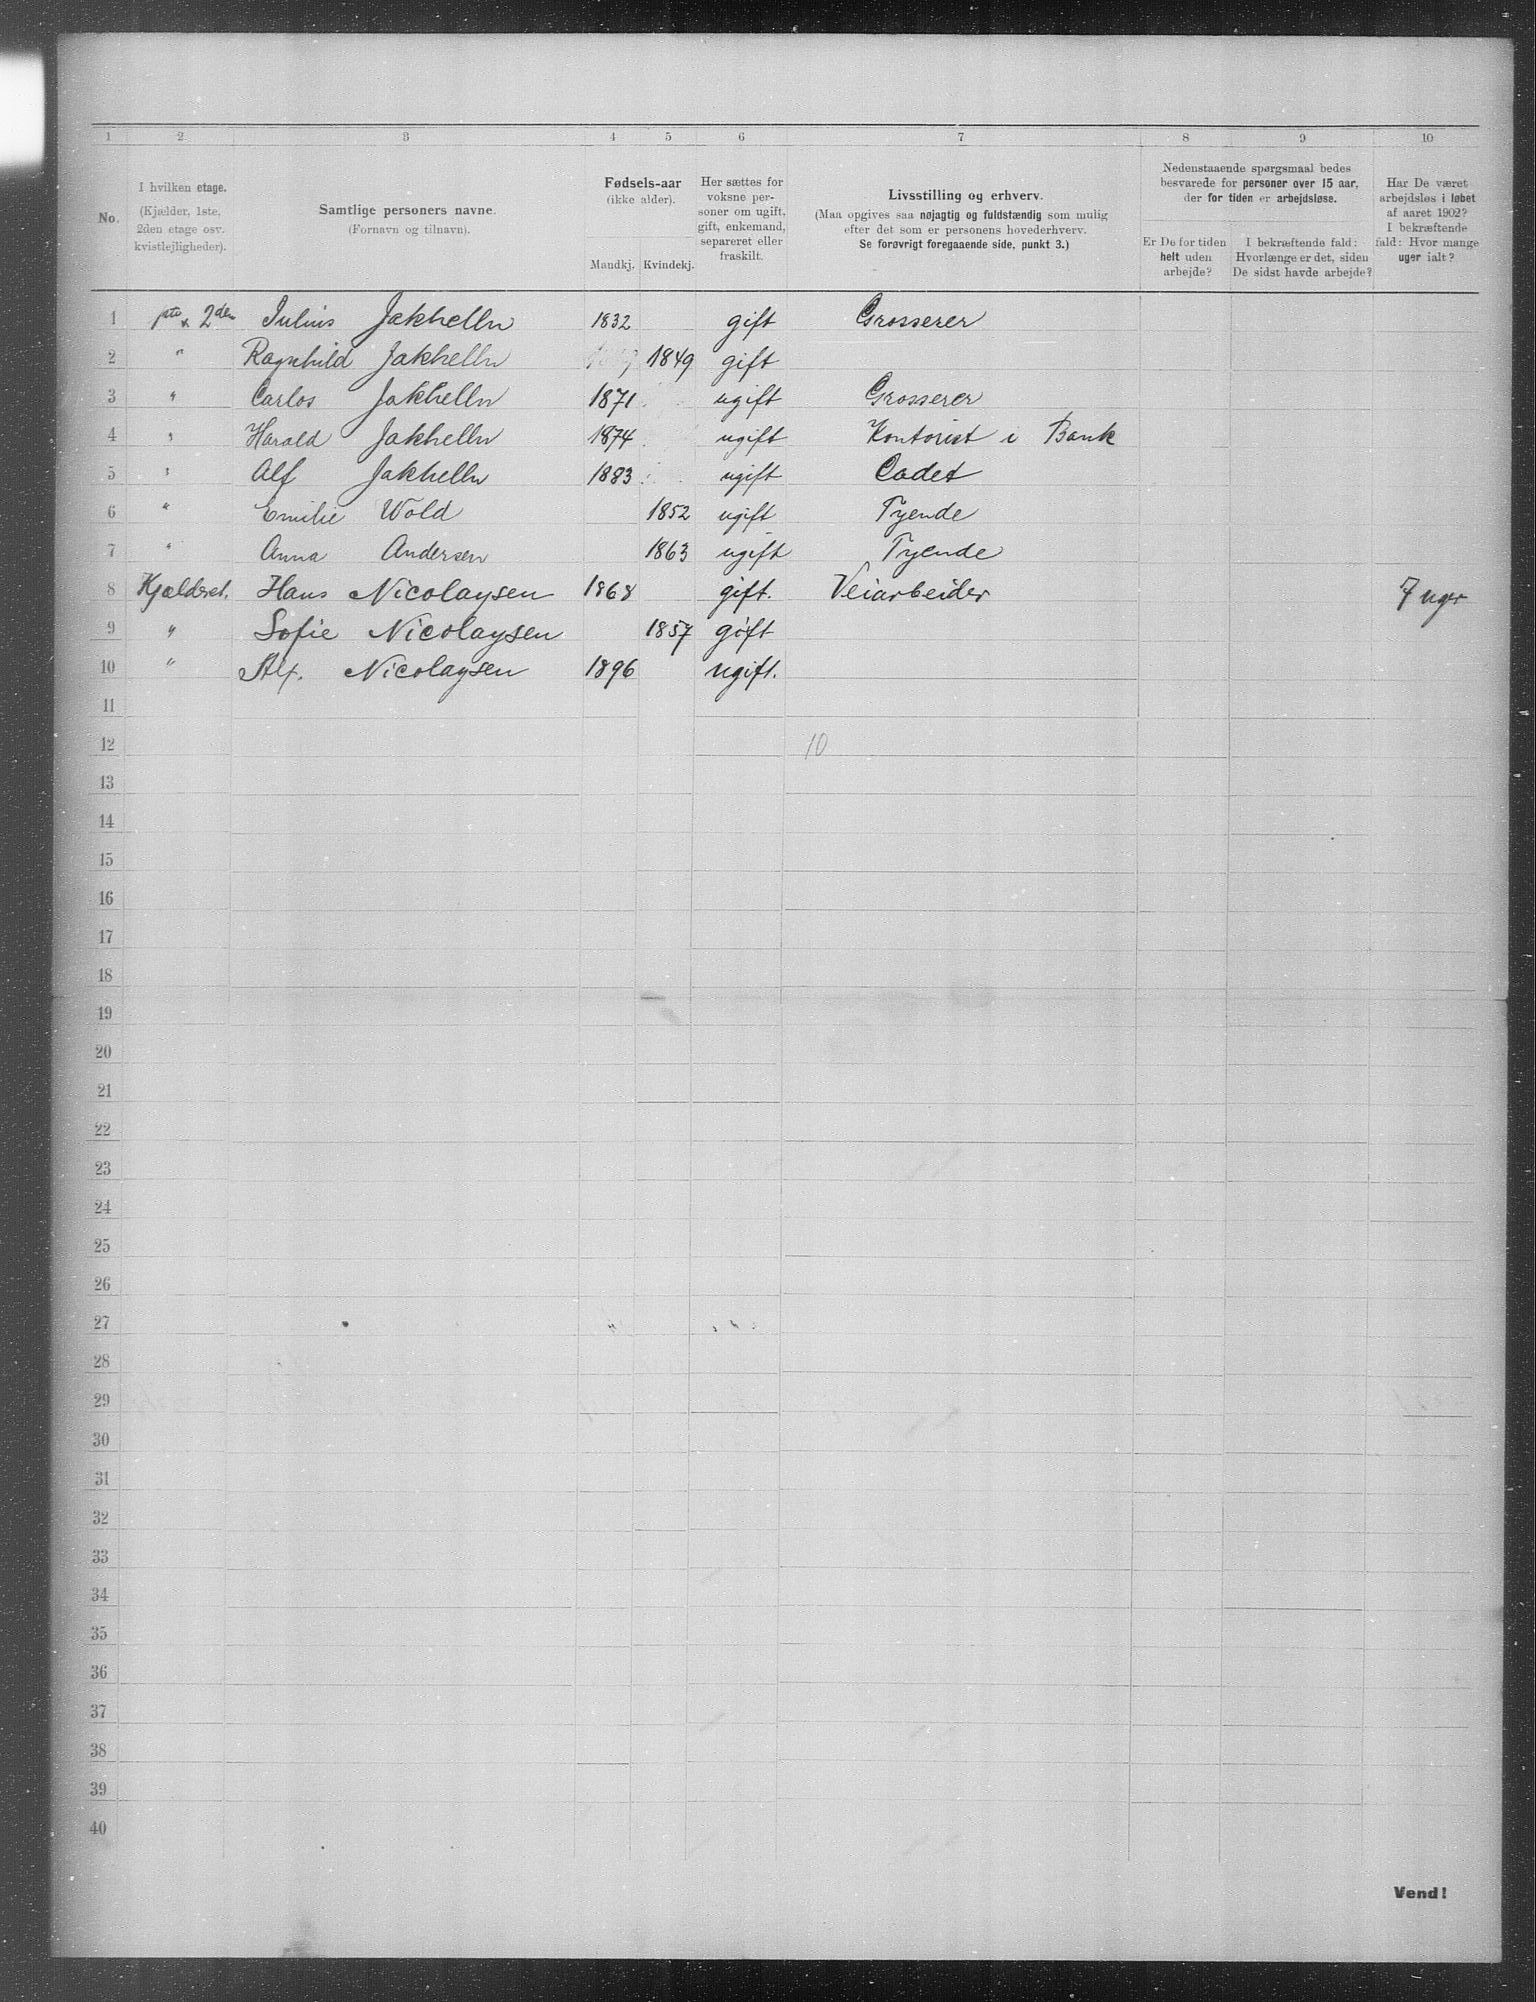 1 2 3 4 5 6 7 8 9 10
No.
I hvilken etage.
(Kjælder, 1ste,
2den etage osv.
kvistlejligheder).
Samtlige personers navne.
(Fornavn og tilnavn).
Fødsels-aar
(ikke alder).
Mandkj. Kvindekj.
Her sættes for
voksne per-
soner om ugift,
gift, enkemand,
separeret eller
fraskilt.
Livsstilling og erhverv.
(Maa opgives saa nøjagtig og fuldstændig som mulig
efter det som er personens hovederhverv.
Se forøvrigt foregaaende side, punkt 3.)
Nedenstaaende spørgsmaal bedes
besvarede for personer over 15 aar,
der for tiden er arbejdsløse.
Er De for tiden
helt uden
arbejde?
I bekræftende fald:
Hvorlænge er det, siden
De sidst havde arbejde?
Har De været
arbejdsløs i løbet
af aaret 1902?
I bekræftende
fald: Hvor mange
uger ialt?
1 1ste & 2den Julius Jakhelln 1832 gift Grosserer
2 " Ragnhild Jakhelln 1849 gift
3 " Carlos Jakhelln 1871 ugift Grosserer
4 " Harald Jakhelln 1874 ugift Kontorist i Bank
5 " Alf Jakhelln 1883 ugift Cadet
6 " Emilie Wold 1852 ugift Tyende
7 " Anna Andersen 1863 ugift Tyende
8 Kjælderet. Hans Nicolaysen 1868 gift. Veiarbeider 7 uger
9 " Sofie Nicolaysen 1857 gift
10 " Alf. Nicolaysen 1896 ugift.
11
12 10
13
14
15
16
17
18
19
20
21
22
23
24
25
26
27
28
29
30
31
32
33
34
35
36
37
38
39
40
Vend!